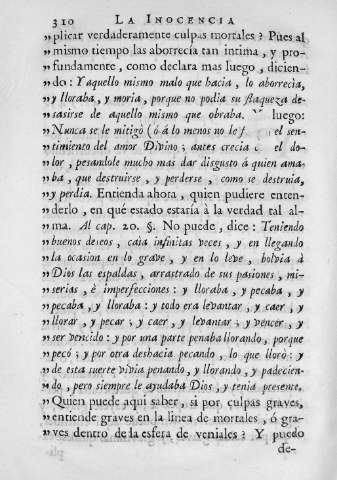 310 LA INOCENCIA
„plicar verdaderamente culpas mortales? Pues al
„mismo tiempo las aborrecía tan intima, y pro-
„fundamente, como declara mas luego, dicien-
„do: Y aquello mismo malo que hacia, lo aborrecia,
„y lloraba, y moria, porque no podia su flaqueza de-
„sasirse de aquello mismo que obraba. Y luego:
„Nunca se le mitigò (ó á lo menos no le el sen-
„timiento del amor Divino; antes crecia el do-
„lor, pesandole mucho mas dar disgusto á quien ama-
„ba, que destruirse, y perderse, como se destruia,
„y perdia. Entienda ahora, quien pudiere enten-
„derlo, en qué estado estaría à la verdad tal al-
„ma. Al cap. 20. §. No puede, dice: Teniendo
„buenos deseos, caia infinitas veces, y en llegando
„la ocasion en lo grave, y en lo leve, bolvia à
„Dios las espaldas, arrastrado de sus pasiones, mi-
„serias, è imperfecciones: y lloraba, y pecaba, y
„pecaba, y lloraba: y todo era levantar, y caer, y
„llorar, y pecar; y caer, y levantar; y vencer, y
„ser vencido: y por una parte penaba llorando, porque
„pecó; y por otra deshacia pecando, lo que lloró: y
„de esta suerte vivia penando, y llorando, y padecien-
„do, pero siempre le ayudaba Dios, y tenia presente.
„Quien puede aqui saber, si por culpas graves,
„entiende graves en la linea de mortales, ó gra-
„ves dentro de la esfera de veniales? Y puedo
de-